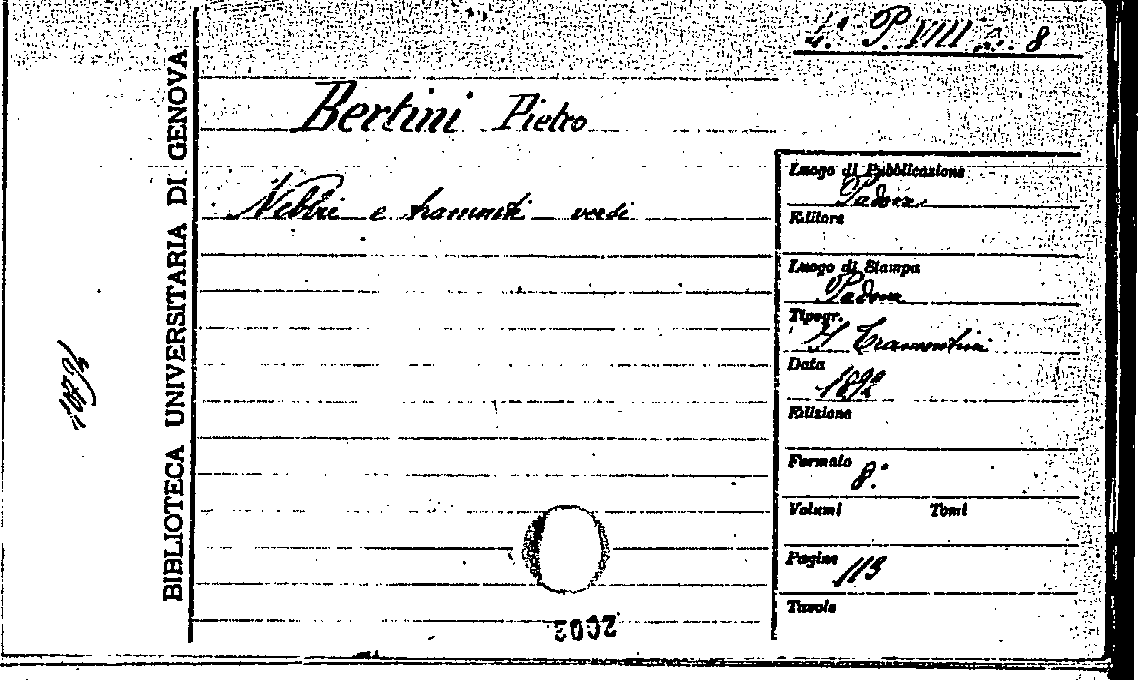 4. P. VIII 8
Bertini Pietro
Nebbie e tramonti versi
BIBLIOTECA UNIVERSITARIA DI GENOVA
Luogo di Pubblicazione
Padova
Editore
Luogo di Stampa
Padova
Tipogr.
Tramontini
Data
1892
Edizione
Formato
8º
Volumi Tomi
Pagine
113
Tavole
2002